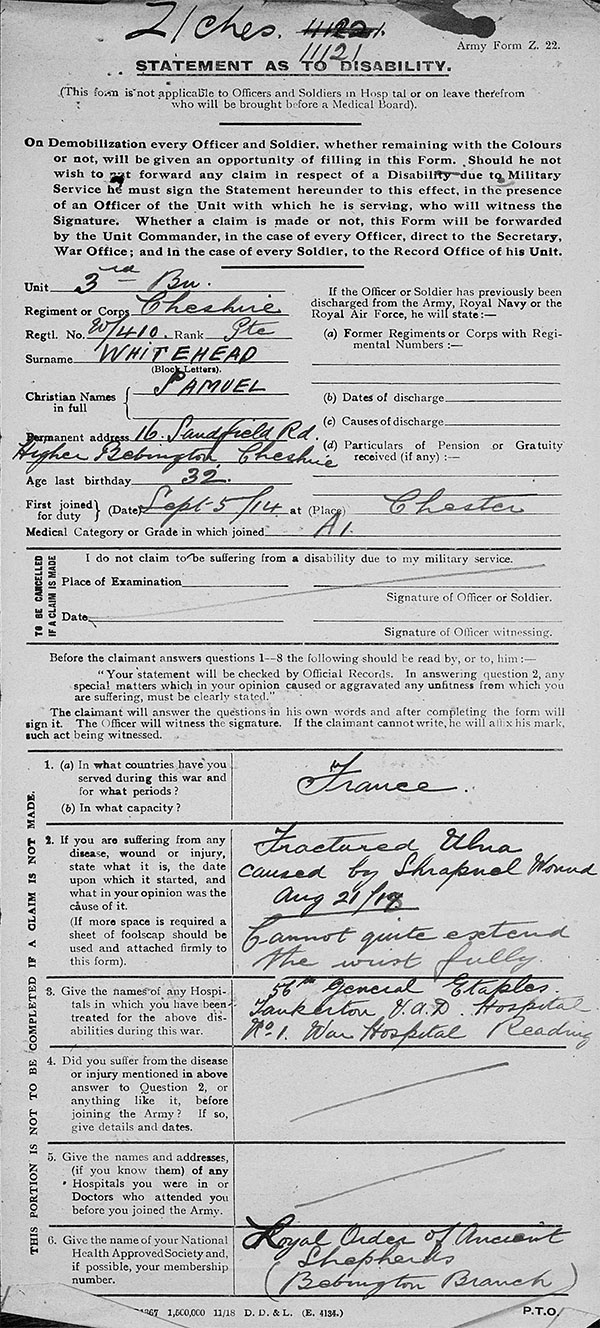 Z/Ches. 11121.
11121
Army Form Z. 22.
STATEMENT AS TO DISABILITY.
(This form is not applicable to Officers and Soldiers in Hospital or on leave therefrom
who will be brought before a Medical Board).
On Demobilization every Officer and Soldier, whether remaining with the Colours
or not, will be given an opportunity of filling in this Form. Should he not
wish to put forward any claim in respect of a Disability due to Military
Service he must sign the Statement hereunder to this effect, in the presence
of an Officer of the Unit with which he is serving, who will witness the
Signature. Whether a claim is made or not, this Form will be forwarded
by the Unit Commander, in the case of every Officer, direct to the Secretary,
War Office; and in the case of every Soldier, to the Record Office of his Unit.
Unit 3rd Bn.
Regiment or Corps Cheshire
Regtl. No. W/410. Rank Pte
Surname WHITEHEAD
(Block Letters).
Christian Names in full SAMUEL
Permanent address 16. Sandfield Rd.
Higher Bebington Cheshire
Age last birthday 32.
If the Officer or Soldier has previously been
discharged from the Army, Royal Navy or the
Royal Air Force, he will state:—
(a) Former Regiments or Corps with Regi-
mental Numbers:—
(b) Dates of discharge
(c) Causes of discharge
(d) Particulars of Pension or Gratuity
received (if any):—
First joined for duty } (Date) Sept 5/14 at (Place) Chester
Medical Category or Grade in which joined A1.
TO BE CANCELLED
IF A CLAIM IS MADE
I do not claim to be suffering from a disability due to my military service.
Place of Examination
Signature of Officer or Soldier.
Date
Signature of Officer witnessing.
Before the claimant answers questions 1—8 the following should be read by, or to, him:—
"Your statement will be checked by Official Records. In answering question 2, any
special matters which in your opinion caused or aggravated any unfitness from which you
are suffering, must be clearly stated."
The claimant will answer the questions in his own words and after completing the form will
sign it. The Officer will witness the signature. If the claimant cannot write, he will affix his mark,
such act being witnessed.
THIS PORTION IS NOT TO BE COMPLETED IF A CLAIM IS NOT MADE.
1. (a) In what countries have you
served during this war and
for what periods?
(b) In what capacity?
France.
2. If you are suffering from any
disease, wound or injury,
state what it is, the date
upon which it started, and
what in your opinion was the
cause of it.
(If more space is required a
sheet of foolscap should be
used and attached firmly to
this form).
Fractured Ulna
caused by Shrapnel Wound
Aug 21/18
Cannot quite extend
the wrist fully.
3. Give the names of any Hospi-
tals in which you have been
treated for the above dis-
abilities during this war.
56th General Etaples.
Tankerton V.A.D. Hospital
No 1. War Hospital Reading
4. Did you suffer from the disease
or injury mentioned in above
answer to Question 2, or
anything like it, before
joining the Army? If so,
give details and dates.
5. Give the names and addresses,
(if you know them) of any
Hospitals you were in or
Doctors who attended you
before you joined the Army.
6. Give the name of your National
Health Approved Society and,
if possible, your membership
number.
Loyal Order of Ancient
Shepherds
(Bebington Branch)
1,500,000 11/18 D. D. & L. (E. 4134.)
P.T.O.